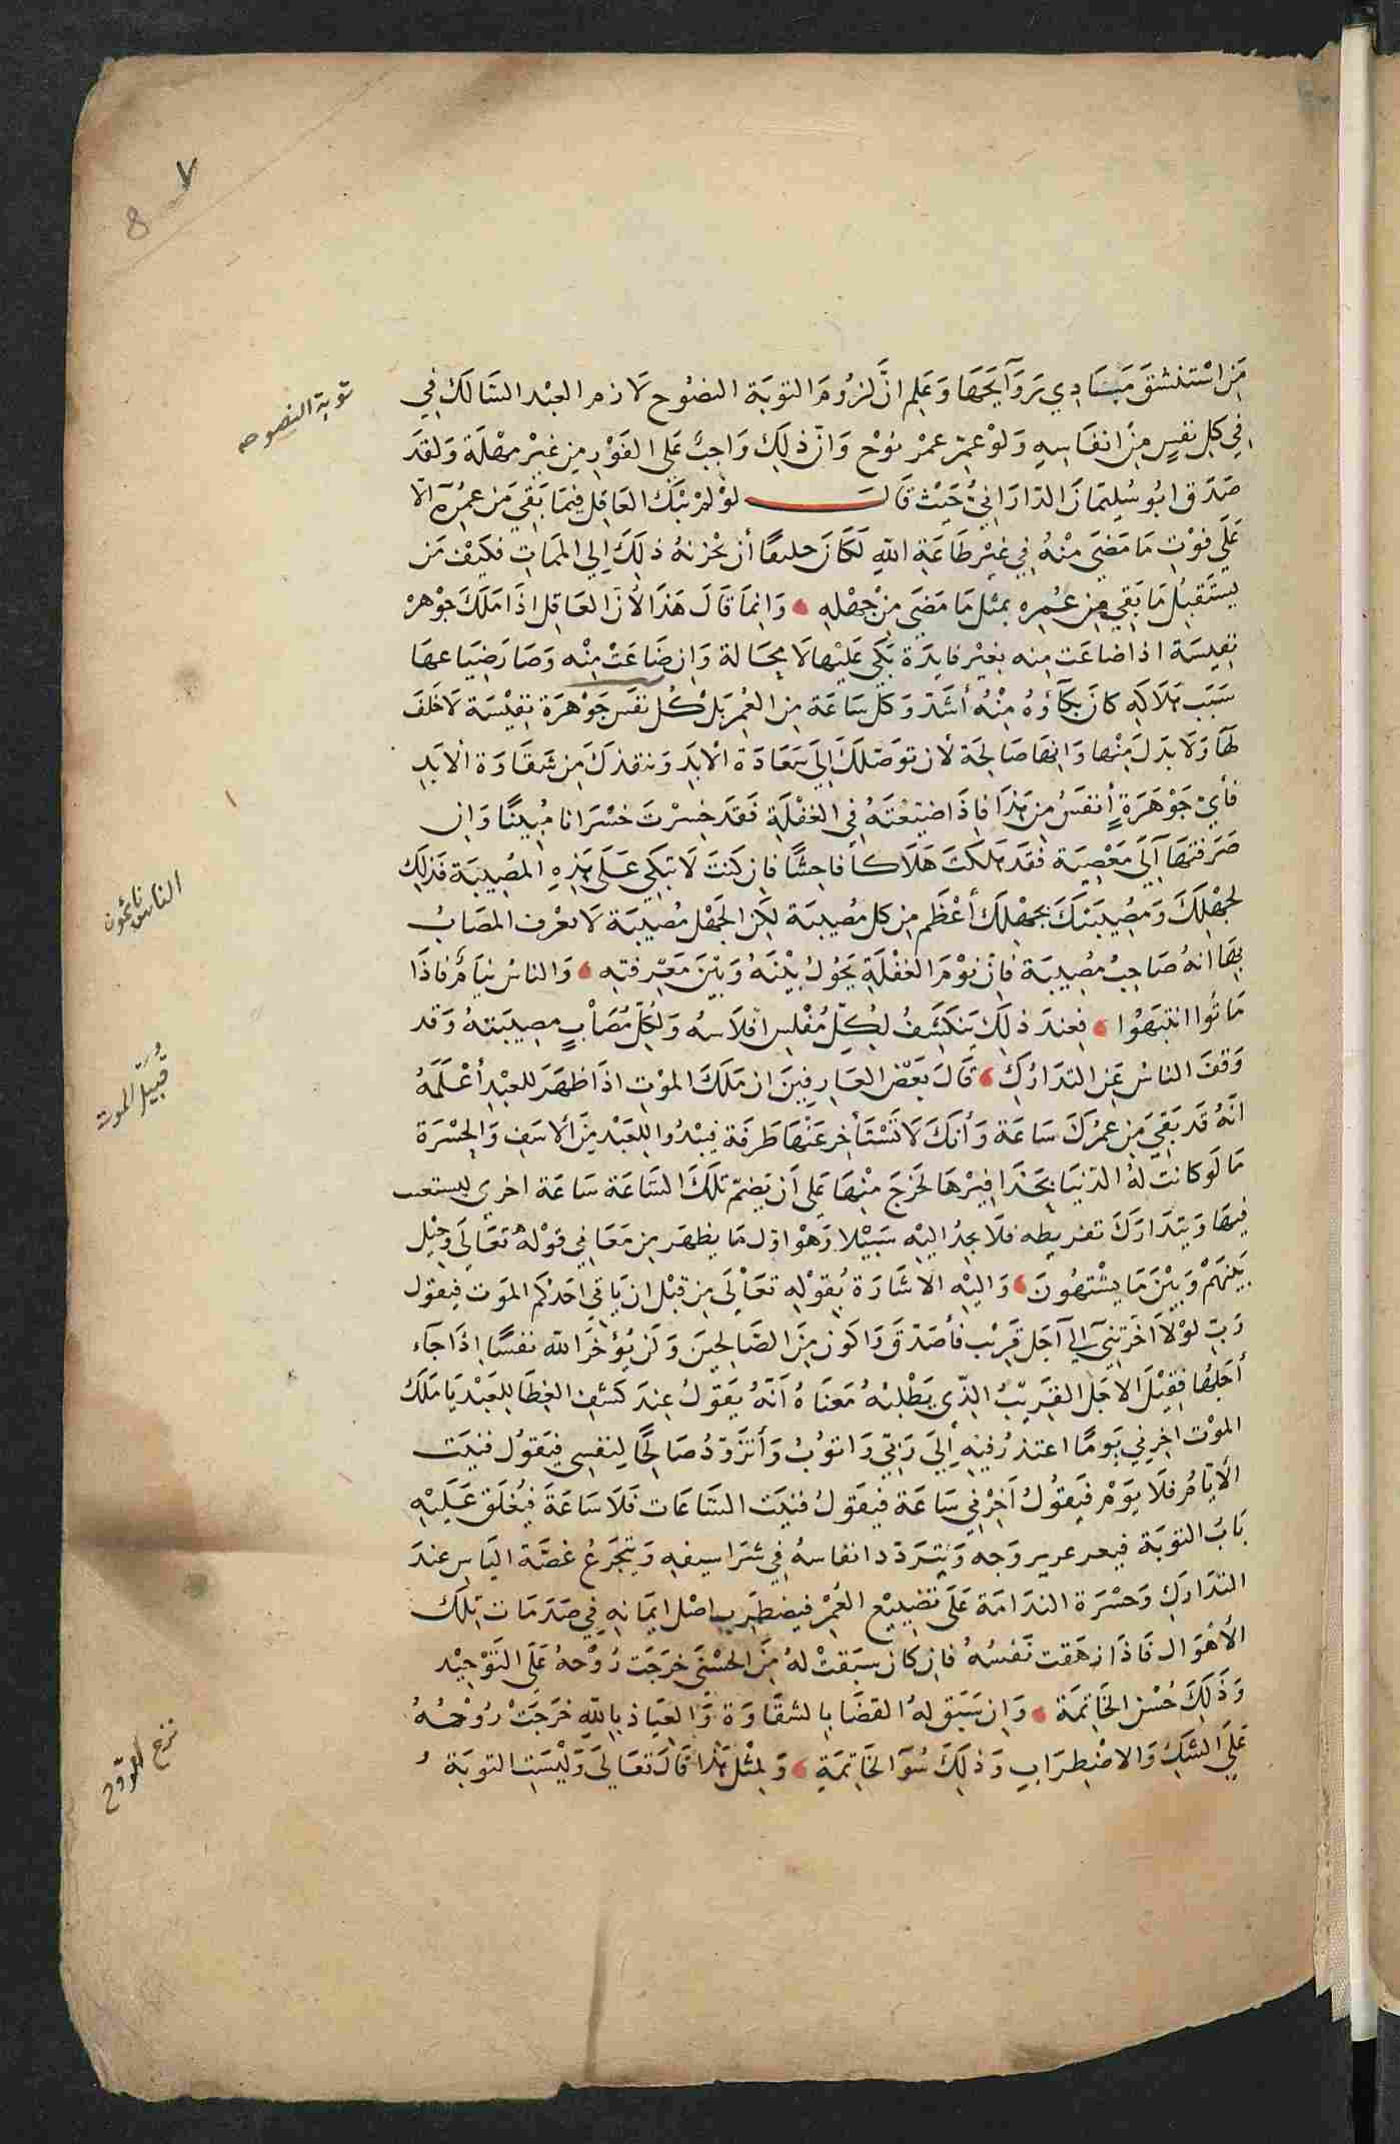 ٧
8
مَن اسْتنشقَ مَبَادِي رَوَايحَهَا وَعَلِم انَّ لزُومَ التوبَة النصُوح لَازم العبْد السَّالكْ فِي
توبة النصوح
فِي كل نفسٍ مِنْ انفَاسِهِ وَلوْ عمِّر عمْر نوُحْ وَانّ ذلِكَ وَاجبٌ عَلَى الفَوْرِ مِن غيْرِ مهْلَة وَلقدَ
صَدَق ابُو سُليمَانَ الدّارَانِيُّ حَيْث قَالَ لوْ لمْ يبْكِ العَاقِل فيْمَا بَقِيَ مَن عمُرهِ الّا
عَلَى فوْتِ مَا مَضَى منْهُ فِي غيْر طَاعَةِ اللهِ لكَانَ خليقًا أن يحْزنهُ ذلِكَ إلي الممَاتِ فكَيْف مَن
يستَقبِلُ مَا بَقِي مِن عمُره بمثْل مَا مَضَى مِنْ جهْلهِ وَانمَا قَالَ هَذَا لأنَ العَاقِل اذَا مَلَكَ جَوْهرة
نفِيسَة اذا ضاعَت مِنه بغيْر فايدَة بَكَي عَليْها لا محَالة وَان ضَاعَتْ مِنْه وَصَارَ ضيَاعهَا
سَبَبَ هلَاكه كانَ بكآؤهُ مِنْهُ أشَدّ وَكل سَاعَة مِن العُمر بَلْ كُل نفَس جَوْهرَة نفِيْسَة لَا خلَفَ
لهَا وَلَا بدَلَ مِنْها وَانهَا صَالحَة لأن توَصّلكَ إلَى سَعَادَة الأبَدِ وَتنقذكَ مَن شقَاوَة الأبَدِ
فأيّ جَوْهَرَةٍ أنفَسُ مِن هذَا فاذَا ضيّعْتَهُ فِي الغفْلَةِ فَقدَ خسِرْتَ خسْرَانا مُبينًا وَان
صَرَفتهَا إلَى مَعْصِيَة فقَد هلكَتَ هَلَاكاً فاحِشًا فان كنتَ لَا تبكِي عَلَى هذِهِ المصِيبَة فذلِكَ
لجهْلكَ وَمصِيبَتكَ بجهْلكَ أعْظَم مِن كل مصيبة لكن الجَهْل مُصيبَة لَا يعْرف المصَابُ
الناس نائمون
بهَا أنهُ صَاحِبُ مُصِيبَة فانّ نوْمَ الغفْلةِ يَحُولُ بيْنَهُ وَبيْنَ مَعْرفتِهِ وَالناسُ نيَامٌ فاذَا
مَاتُوا انتبهُوا فعِندَ ذلِكَ يَنكشِفُ لكلِّ مُفْلِسٍ افلاسهُ وَلكلِّ مُصَابٍ مصِيبَتهُ وَقد
وَقفَ الناسُ عَنِ التدَارُكِ قَالَ بَعْض العَارفِينَ ان مَلَكَ الموْتِ اذَا ظهَرَ للعبْدِ أعْلَمَهُ
قبيل الموت
انّهُ قَد بَقِيَ مِن عمُرُكَ سَاعَة وَأنكَ لَا تسْتَأخِر عَنْهَا طَرفَة فيَبْدُوا للعَبْدِ مِنَ الأسَفِ وَالحسْرَة
مَا لَو كانت لهُ الدّنيَا بحَذَافيْرهَا لخرَجَ منْهَا عَلى أن يَضمّ تلكَ السّاعَة سَاعَة اخري ليستعتب
فيهَا وَيتدَارَكَ تفريطه فلَا يجِدُ اليْهِ سَبيْلا وَهْوَ اوّل مَا يظهَر مِن مَعَاني قوْلهُ تعَالَى وَحِيْل
بَيْنهُمْ وَبيْنَ مَا يشْتهُونَ وَاليْهِ الاشَارَة بُقوْلهِ تعَالَى مِن قبْل ان يَأتِي احَدُكمُ الموَت فيقول
رَبّ لَوْلا اخَرتنِي إلي آجَل قَريْب فأصّدّقَ وَاكون مِنَ الصَّالحِيَن وَلَن يؤَخّرَ الله نفسًا اذَا جَآء
أجَلُهَا فقيْلَ الاجَل القريْبُ الذّي يَطْلبُهُ مَعنَاهُ أنّهُ يَقوُلُ عِندَ كشْفِ الغِطَا للعَبْدِ يَا مَلَكَ
الموْت اخرنِي يَومًا اعتذرُ فيْهِ إلَى رَبّي وَاتوُبُ وَأتزَوّدُ صَالحًا لِنفسِي فيَقوُل فنيَت
الأيّامُ فلَا يوَمْ فيَقوُل أخِرْنِي سَاعَة فيقوُل فنيَت السّاعَات فَلَا سَاعَة فيُغلَق عَلَيْهِ
بَابُ التوبَة فيغرغر بروحه وَيترَدّد انفاسهُ فِي شرَاسيفهِ وَيتجَرعُ غصّة اليَاسِ عندَ
التدَاركِ وَحسْرَة الندَامَة عَلَى تضْييْع العُمْر فيضطَرب اصْل ايمَانهِ فِي صَدمَات تلكَ
الأهْوَال فاذَا زهَقت نَفسُهُ فان كانَ سبَقتْ لهُ مِنَ الحسْنَى خرَجَت رُوْحهُ عَلَى التوْحِيْد
وَذلِكَ حُسْن الخَاتِمَة وَان سَبَق لهُ القضَا بالشقَاوَة وَالعِيَاذ بِاللهِ خرَجَتْ رُوْحُهُ
نزع الروح
عَلَى الشّكِ وَالاضْطِرَابِ وَذلِكَ سُوَآ الخَاتِمَةِ وَلمثْل هذَا قَالَ تعَالَى وَليْسَتِ التوبَة